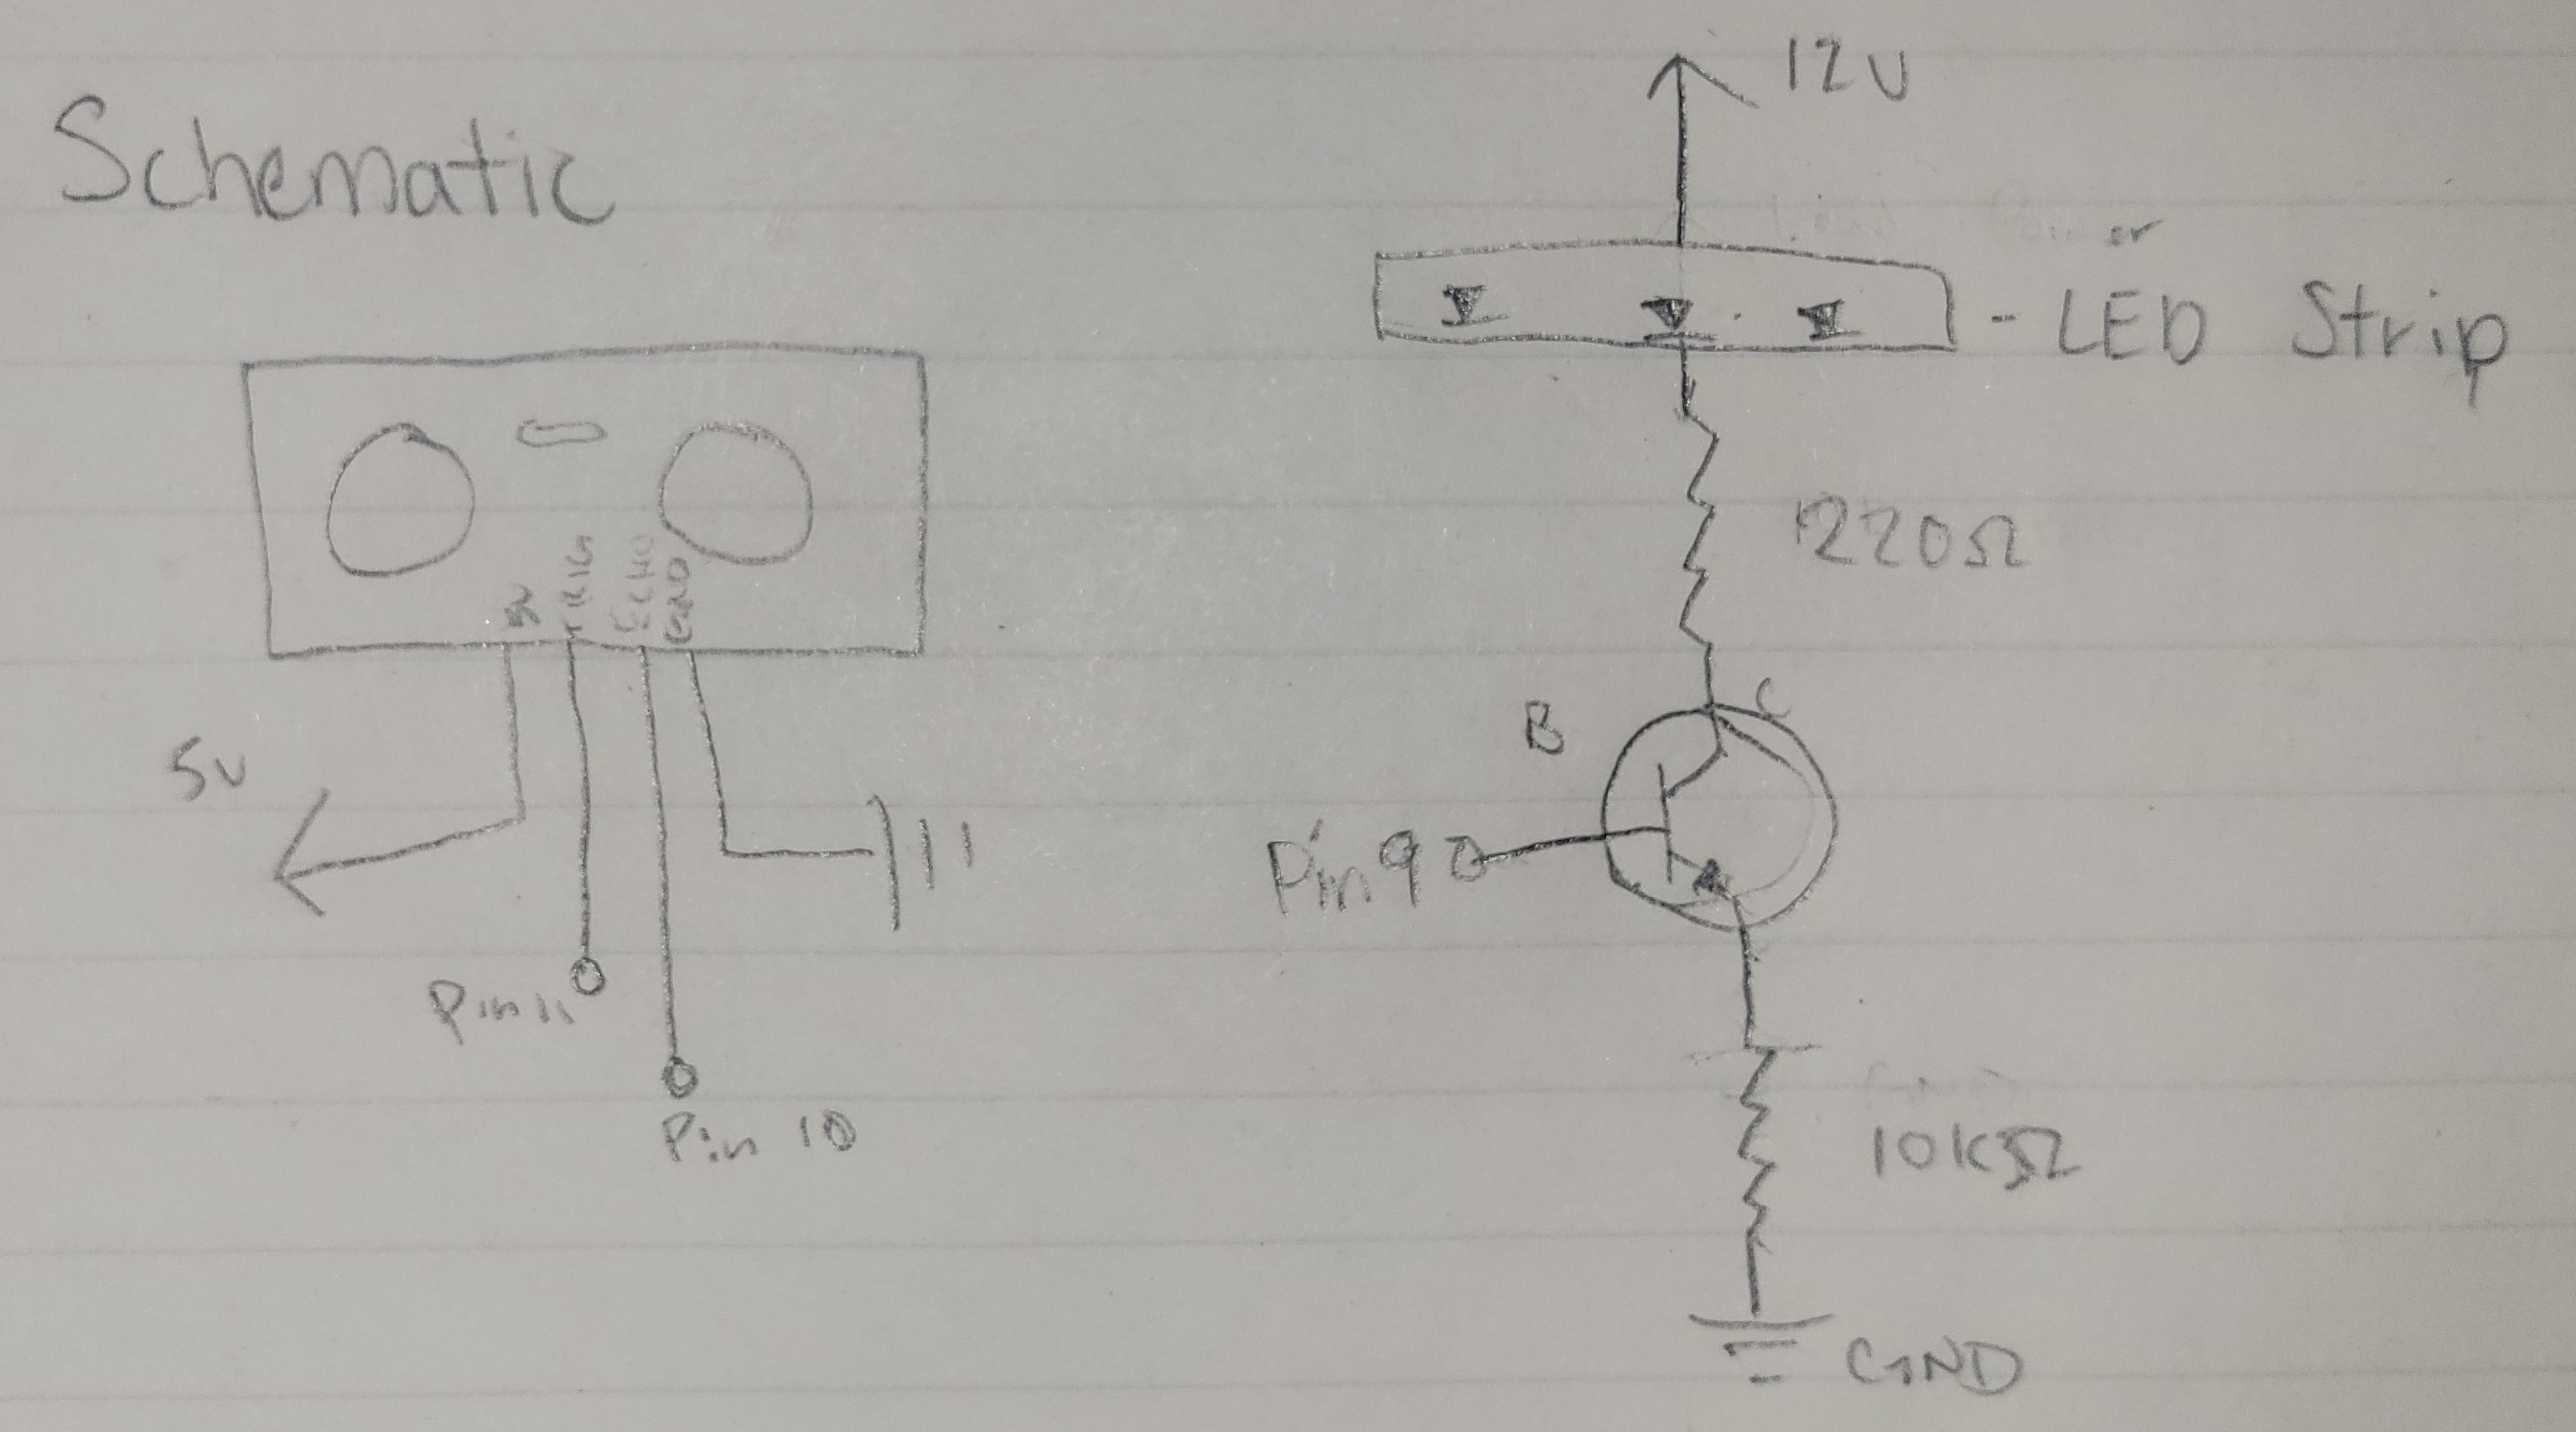 Schematic
5V
TRIG
ECHO
GND
5v
Pin 11
Pin 10
12V
or
- LED Strip
220Ω
B
C
Pin 9
10KΩ
GND